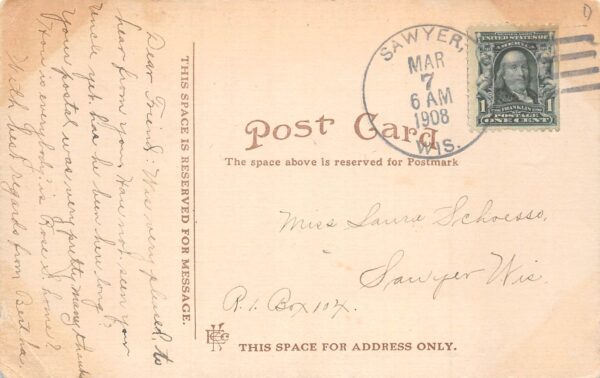 Dear Friend: Was very pleased to
hear from you. Have not seen your
uncle yet. has he bun here long?
Your postal was very pretty, many thanks
How is everybody; is Rose S. home?
With best regards from Bertha.
THIS SPACE IS RESERVED FOR MESSAGE.
SAWYER,
MAR
7
6 AM
1908
WIS.
UNITED STATES OF
AMERICA
FRANKLIN
1 1
POSTAGE
ONE CENT
Post Card
The space above is reserved for Postmark
Miss Laura Schoesso,
Sawyer Wis.
R. 1. Box 104.
THIS SPACE FOR ADDRESS ONLY.